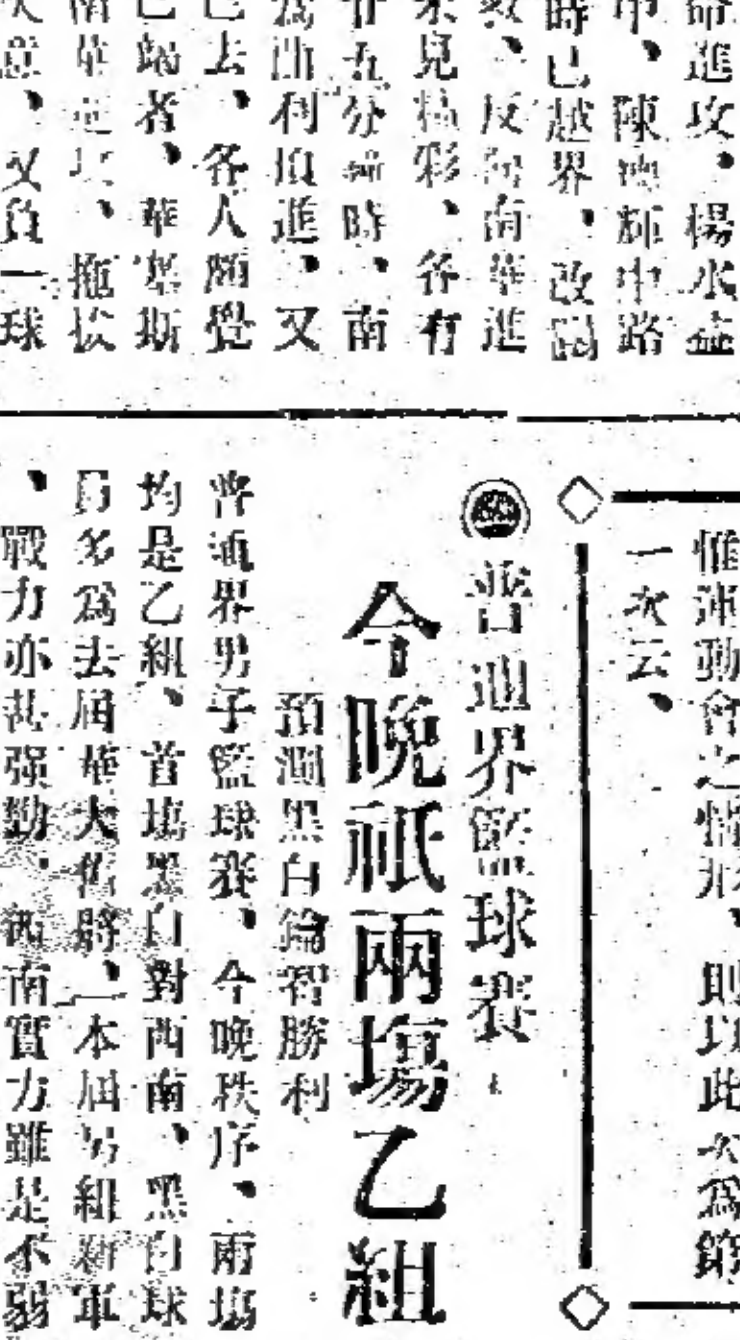 命進攻、楊水益
中、陳德輝中路
時已越界、改罰
數、反爲南華進
未見精彩、各有
廿五分鐘時、南
爲曲利浪進、又
已去、各人隨覺
已竭者、華塞斯
南華進攻、拖扳
失意、又負一球
惟運動會之情形、則以此次爲第
一次云、
普通界籃球賽
今晚祇兩塲乙組
預測黑白鑰智勝利
普通界男子籃球賽、今晚秩序、兩塲
均是乙組、首塲黑白對西南、黑白球
員多爲去屆華大舊將、本屆另組新軍
、戰力亦甚强勁、西南實力雖是不弱